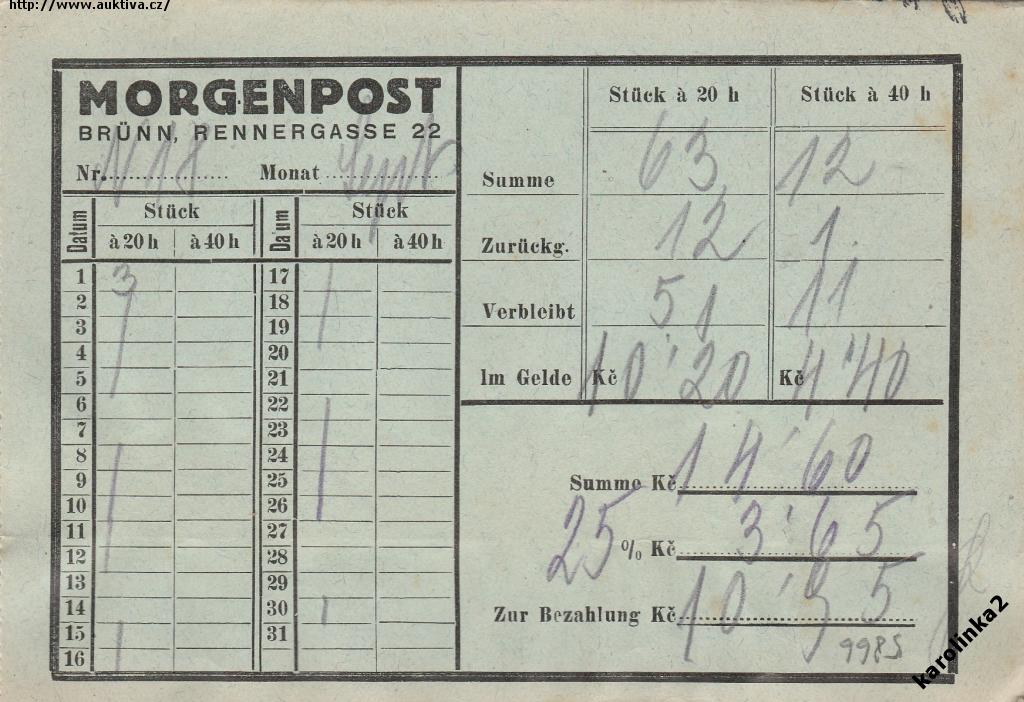 http://www.auktiva.cz/
MORGENPOST
BRÜNN, RENNERGASSE 22
Nr. N 18 Monat Sept
Datum Stück Datum Stück
à 20 h à 40 h à 20 h à 40 h
1 3 17
2 18
3 19
4 20
5 21
6 22
7 23
8 24
9 25
10 26
11 27
12 28
13 29
14 30
15 31
16
Stück à 20 h Stück à 40 h
Summe 63 12
Zurückg. 12 1
Verbleibt 51 11
Im Gelde Kč 10'20 Kč 4'40
Summe Kč 14'60
25 % Kč 3'65
Zur Bezahlung Kč 10'95
9985
karolinka2